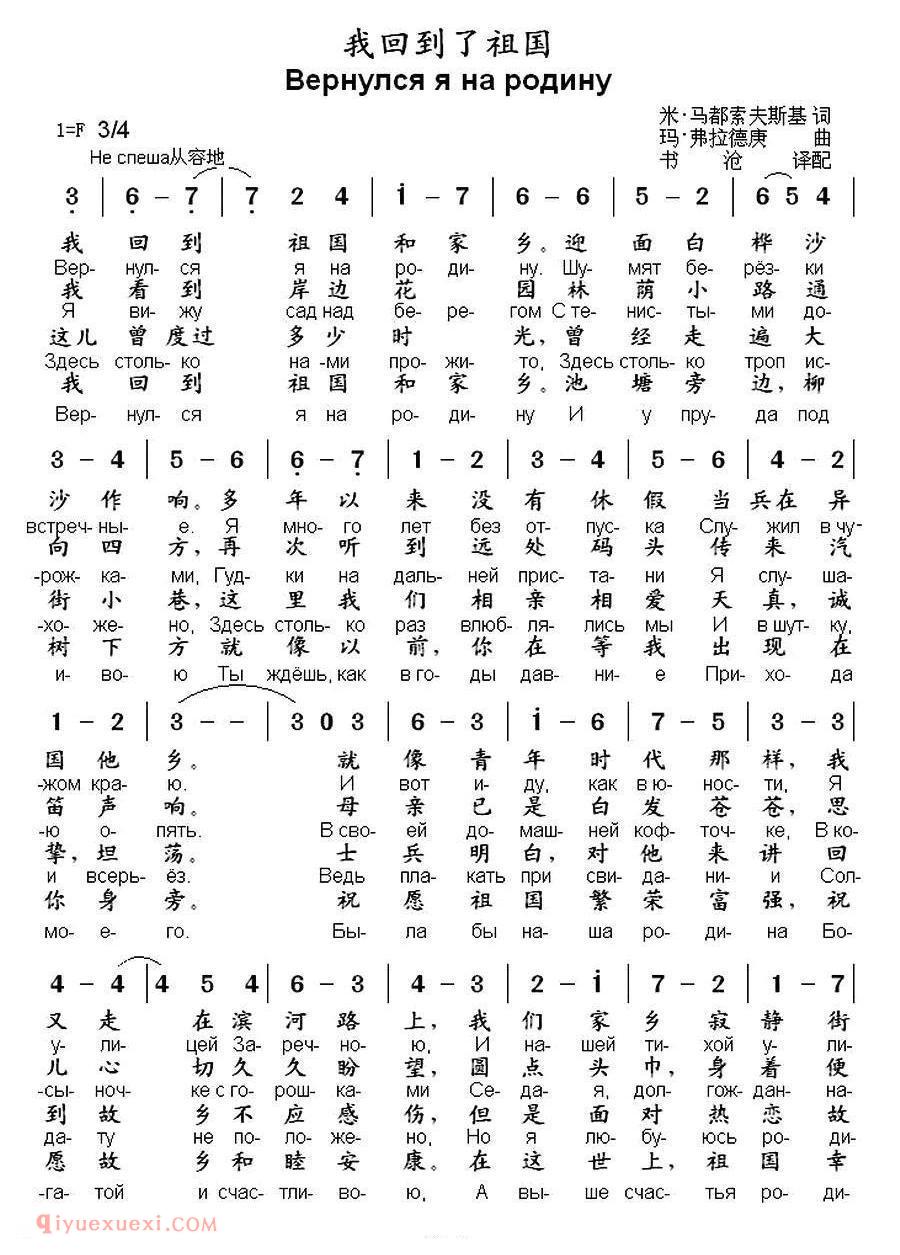 我回到了祖国
Вернулся я на родину
1=F 3/4
米·马都索夫斯基 词
玛·弗拉德庚 曲
书沧 译配
Не спеша从容地
3 | 6 – 7 | 7 2 4 | i – 7 | 6 – 6 | 5 – 2 | 6 5 4 |
我 回 到 祖 国 和 家 乡。迎 面 白 桦 沙
Вер- нул- ся я на ро- ди- ну. Шу- мят бе- рёз- ки
我 看 到 岸 边 花 园 林 荫 小 路 通
Я ви- жу сад над бе- ре- гом С те- нис- ты- ми до-
这儿 曾 度 过 多 少 时 光,曾 经 走 遍 大
Здесь столь- ко на -ми про- жи- то, Здесь столь- ко троп ис-
我 回 到 祖 国 和 家 乡。池 塘 旁 边,柳
Вер- нул- ся я на ро- ди- ну И у пру- да под
3 – 4 | 5 – 6 | 6 – 7 | 1 – 2 | 3 – 4 | 5 – 6 | 4 – 2 |
沙 作 响。多 年 以 来 没 有 休 假 当 兵在 异
встреч- ны- е. Я мно- го лет без от- пус- ка Слу- жил в чу-
向 四 方,再 次 听 到 远 处 码 头 传 来 汽
-рож- ка- ми, Гуд- ки на даль- ней прис- та- ни Я слу- ша-
街 小 巷,这 里 我 们 相 亲 相 爱 天 真,诚
-хо- же- но, Здесь столь- ко раз влюб- ля- лись мы И в шут- ку,
树 下 方 就 像 以 前,你 在 等 我 出 现 在
и- во- ю Ты ждёшь, как в го- ды дав- ни- е При- хо- да
1 – 2 | 3 – – | 3 0 3 | 6 – 3 | i – 6 | 7 – 5 | 3 – 3 |
国 他 乡。 就 像 青 年 时 代 那 样,我
-жом кра- ю. И вот и- ду, как в ю- нос- ти, Я
笛 声 响。 母 亲 已 是 白 发 苍 苍,思
-ю о- пять. В сво- ей до- маш- ней коф- точ- ке, В ко-
挚,坦 荡。 士 兵 明 白,对 他 来 讲 回
и всерь- ёз. Ведь пла- кать при сви- да- ни- и Сол-
你 身 旁。 祝 愿 祖 国 繁 荣 富 强,祝
мо- е- го. Бы- ла бы на- ша ро- ди- на Бо-
4 – 4 | 4 5 4 | 6 – 3 | 4 – 3 | 2 – i | 7 – 2 | 1 – 7 |
又 走 在 滨 河 路 上,我 们 家 乡 寂 静 街
у- ли- цей За- реч- но- ю, И на- шей ти- хой у- ли-
儿 心 切 久 久 盼 望,圆 点 头 巾,身 着 便
-сы- ноч- ке с го- рош- ка- ми Се- да- я, дол- гож- дан- на-
到 故 乡 不 应 感 伤,但 是 面 对 热 恋 故
да- ту не по- ло- же- но, Но я лю- бу- юсь ро- ди-
愿 故 乡 和 睦 安 康。在 这 世 上,祖 国 幸
-га- той и счас- тли- во- ю, А вы- ше счас- тья ро- ди-
qiyuexuexi.com